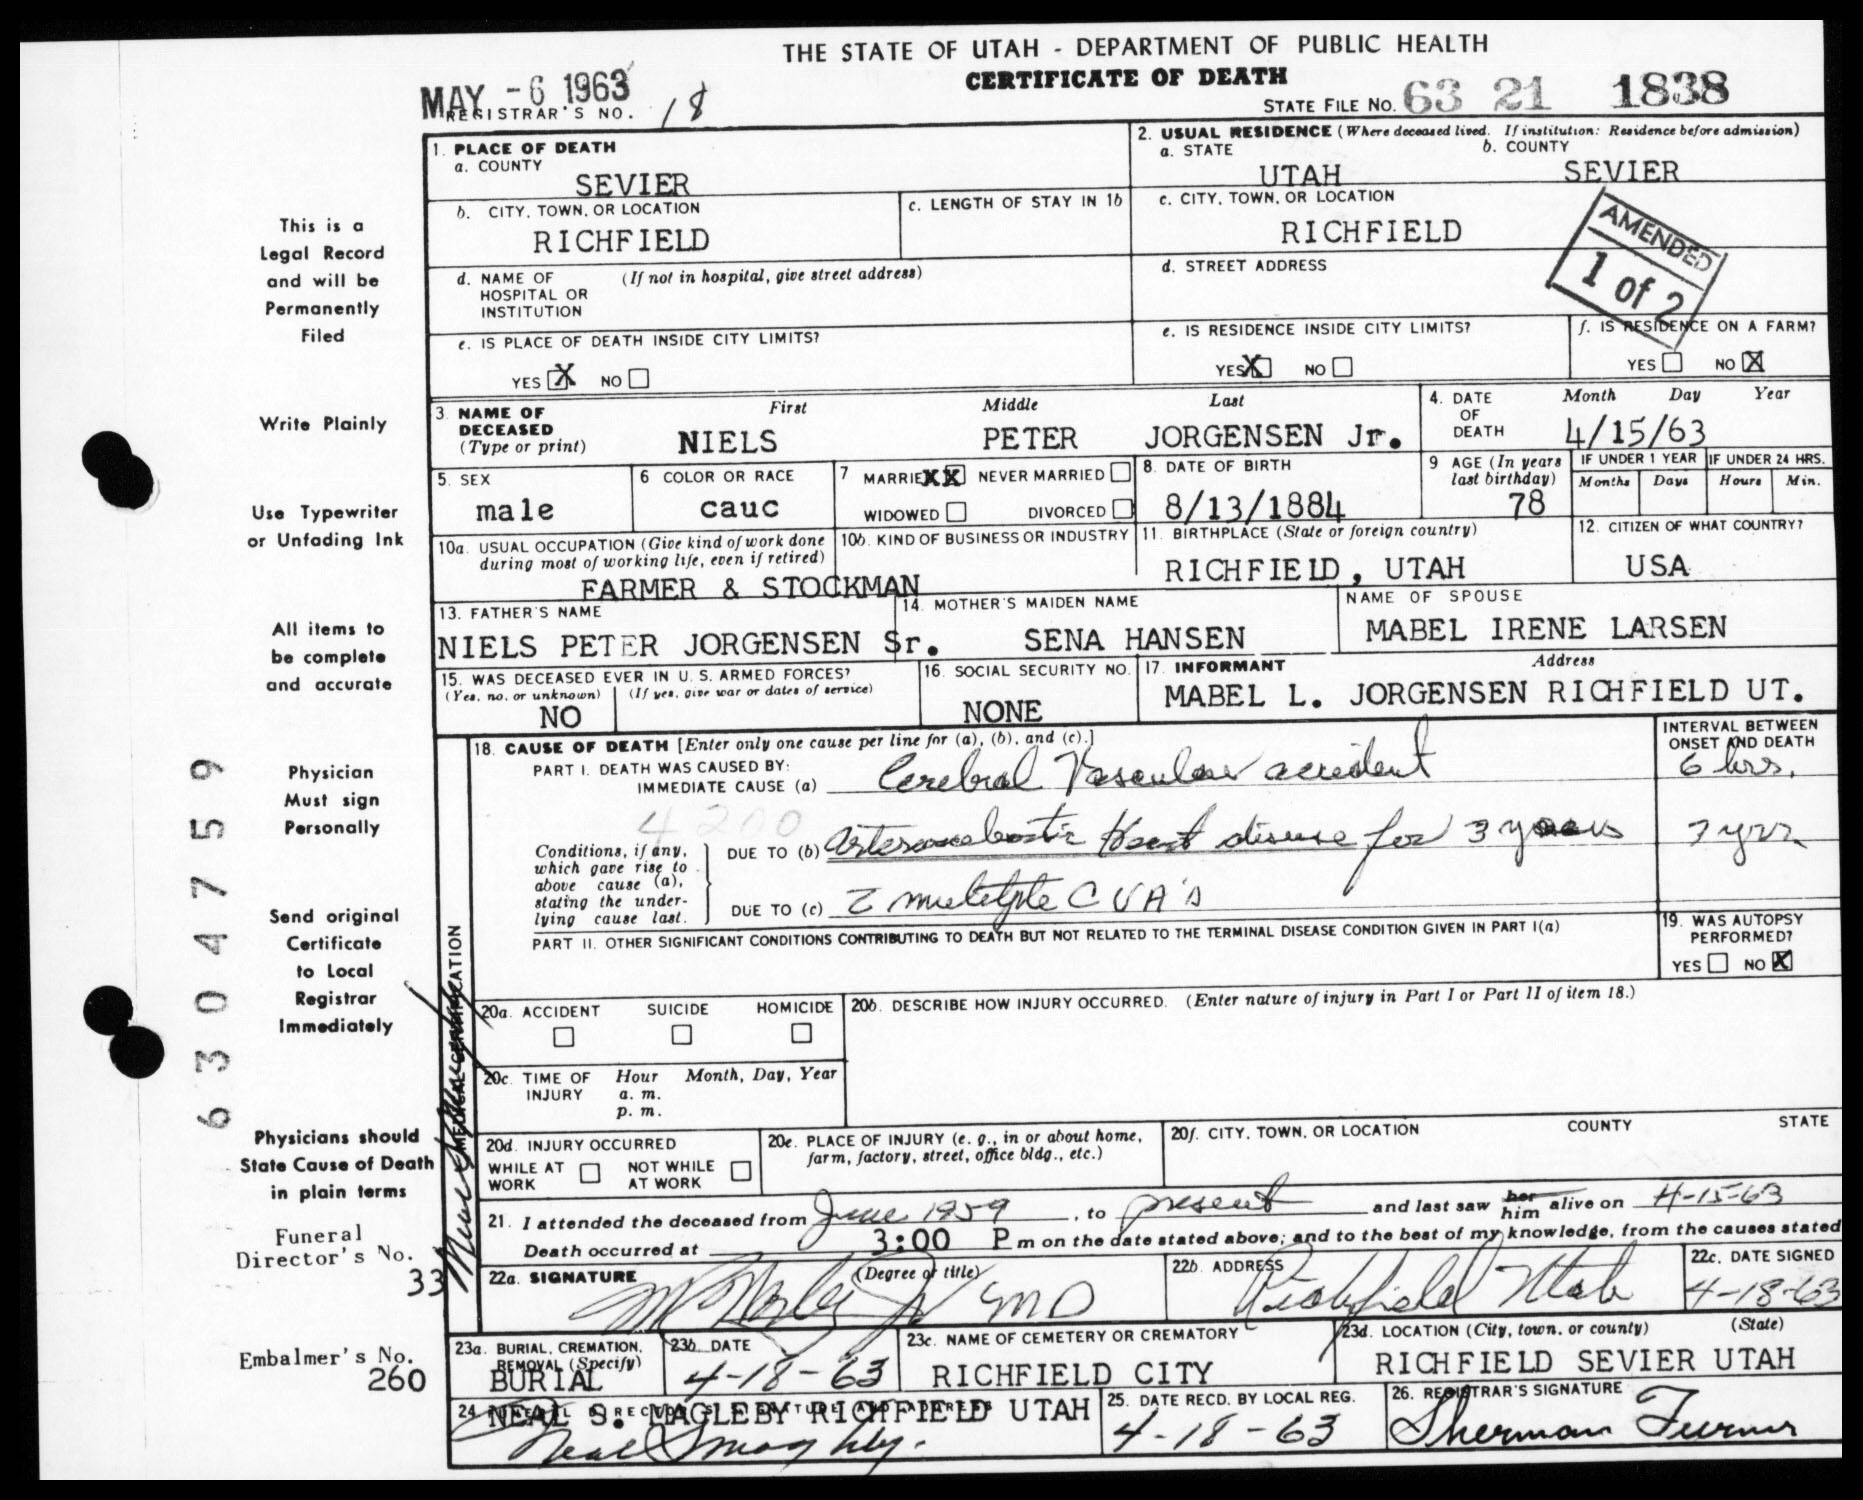 THE STATE OF UTAH - DEPARTMENT OF PUBLIC HEALTH
CERTIFICATE OF DEATH
MAY - 6 1963
REGISTRAR'S NO. 18
STATE FILE NO. 63 21 1838
1. PLACE OF DEATH
a. COUNTY
SEVIER
2. USUAL RESIDENCE (Where deceased lived. If institution: Residence before admission)
a. STATE
b. COUNTY
UTAH SEVIER
b. CITY, TOWN, OR LOCATION
RICHFIELD
c. LENGTH OF STAY IN 1b
c. CITY, TOWN, OR LOCATION
RICHFIELD
AMENDED
1 of 2
d. NAME OF (If not in hospital, give street address)
HOSPITAL OR
INSTITUTION
d. STREET ADDRESS
e. IS PLACE OF DEATH INSIDE CITY LIMITS?
YES X NO
e. IS RESIDENCE INSIDE CITY LIMITS?
YES X NO
f. IS RESIDENCE ON A FARM?
YES NO X
3. NAME OF DECEASED
(Type or print)
First Middle Last
NIELS PETER JORGENSEN Jr.
4. DATE OF DEATH
Month Day Year
4/15/63
5. SEX
male
6 COLOR OR RACE
cauc
7 MARRIED XX NEVER MARRIED
WIDOWED DIVORCED
8. DATE OF BIRTH
8/13/1884
9 AGE (In years last birthday)
78
IF UNDER 1 YEAR
Months Days
IF UNDER 24 HRS.
Hours Min.
10a. USUAL OCCUPATION (Give kind of work done
during most of working life, even if retired)
FARMER & STOCKMAN
10b. KIND OF BUSINESS OR INDUSTRY
11. BIRTHPLACE (State or foreign country)
RICHFIELD, UTAH
12. CITIZEN OF WHAT COUNTRY?
USA
13. FATHER'S NAME
NIELS PETER JORGENSEN Sr.
14. MOTHER'S MAIDEN NAME
SENA HANSEN
NAME OF SPOUSE
MABEL IRENE LARSEN
15. WAS DECEASED EVER IN U. S. ARMED FORCES?
(Yes, no, or unknown) (If yes, give war or dates of service)
NO
16. SOCIAL SECURITY NO.
NONE
17. INFORMANT Address
MABEL L. JORGENSEN RICHFIELD UT.
MEDICAL CERTIFICATION
18. CAUSE OF DEATH [Enter only one cause per line for (a), (b), and (c).]
INTERVAL BETWEEN
ONSET AND DEATH
PART I. DEATH WAS CAUSED BY:
IMMEDIATE CAUSE (a) Cerebral Vascular accident 6 hrs.
4200
Conditions, if any,
which gave rise to
above cause (a),
stating the under-
lying cause last.
DUE TO (b) Arteriosclerotic Heart disease for 3 years 3 yrs
DUE TO (c) c multiple CVA's
PART II. OTHER SIGNIFICANT CONDITIONS CONTRIBUTING TO DEATH BUT NOT RELATED TO THE TERMINAL DISEASE CONDITION GIVEN IN PART I(a)
19. WAS AUTOPSY
PERFORMED?
YES NO X
20a. ACCIDENT SUICIDE HOMICIDE
20b. DESCRIBE HOW INJURY OCCURRED. (Enter nature of injury in Part I or Part II of item 18.)
20c. TIME OF INJURY
Hour Month, Day, Year
a. m.
p. m.
20d. INJURY OCCURRED
WHILE AT WORK NOT WHILE AT WORK
20e. PLACE OF INJURY (e. g., in or about home,
farm, factory, street, office bldg., etc.)
20f. CITY, TOWN, OR LOCATION COUNTY STATE
21. I attended the deceased from June 1959, to present and last saw her him alive on 4-15-63
Death occurred at 3:00 P m on the date stated above; and to the best of my knowledge, from the causes stated
22a. SIGNATURE (Degree or title)
MD
22b. ADDRESS
Richfield Utah
22c. DATE SIGNED
4-18-63
23a. BURIAL, CREMATION,
REMOVAL (Specify)
BURIAL
23b. DATE
4-18-63
23c. NAME OF CEMETERY OR CREMATORY
RICHFIELD CITY
23d. LOCATION (City, town, or county) (State)
RICHFIELD SEVIER UTAH
24
NEAL S. MAGLEBY RICHFIELD UTAH
Neal S Magleby.
25. DATE RECD. BY LOCAL REG.
4-18-63
26. REGISTRAR'S SIGNATURE
Sherman Turner
This is a
Legal Record
and will be
Permanently
Filed
Write Plainly
Use Typewriter
or Unfading Ink
All items to
be complete
and accurate
Physician
Must sign
Personally
Send original
Certificate
to Local
Registrar
Immediately
Physicians should
State Cause of Death
in plain terms
Funeral
Director's No.
33
Embalmer's No.
260
6 3 0 4 7 5 9